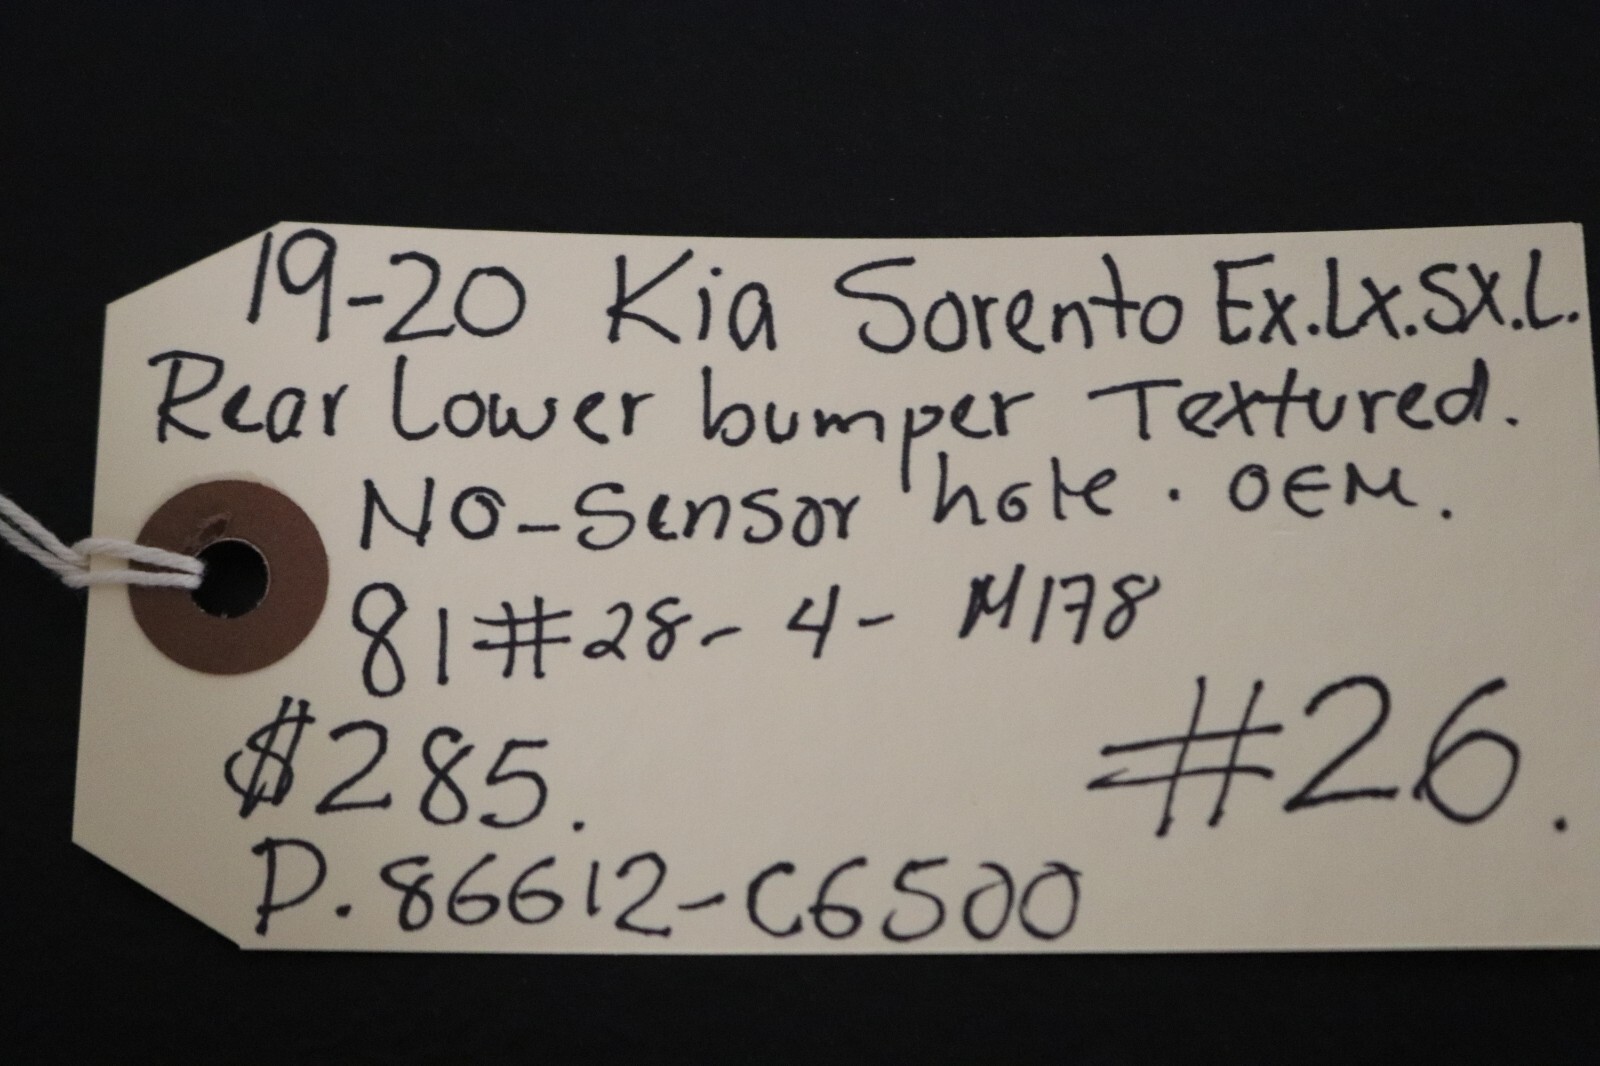 19-20 Kia Sorento Ex.Lx.SX.L.
Rear Lower bumper Textured.
NO-Sensor hole. OEM.
81#28-4-M178
$285. #26.
P.86612-C6500